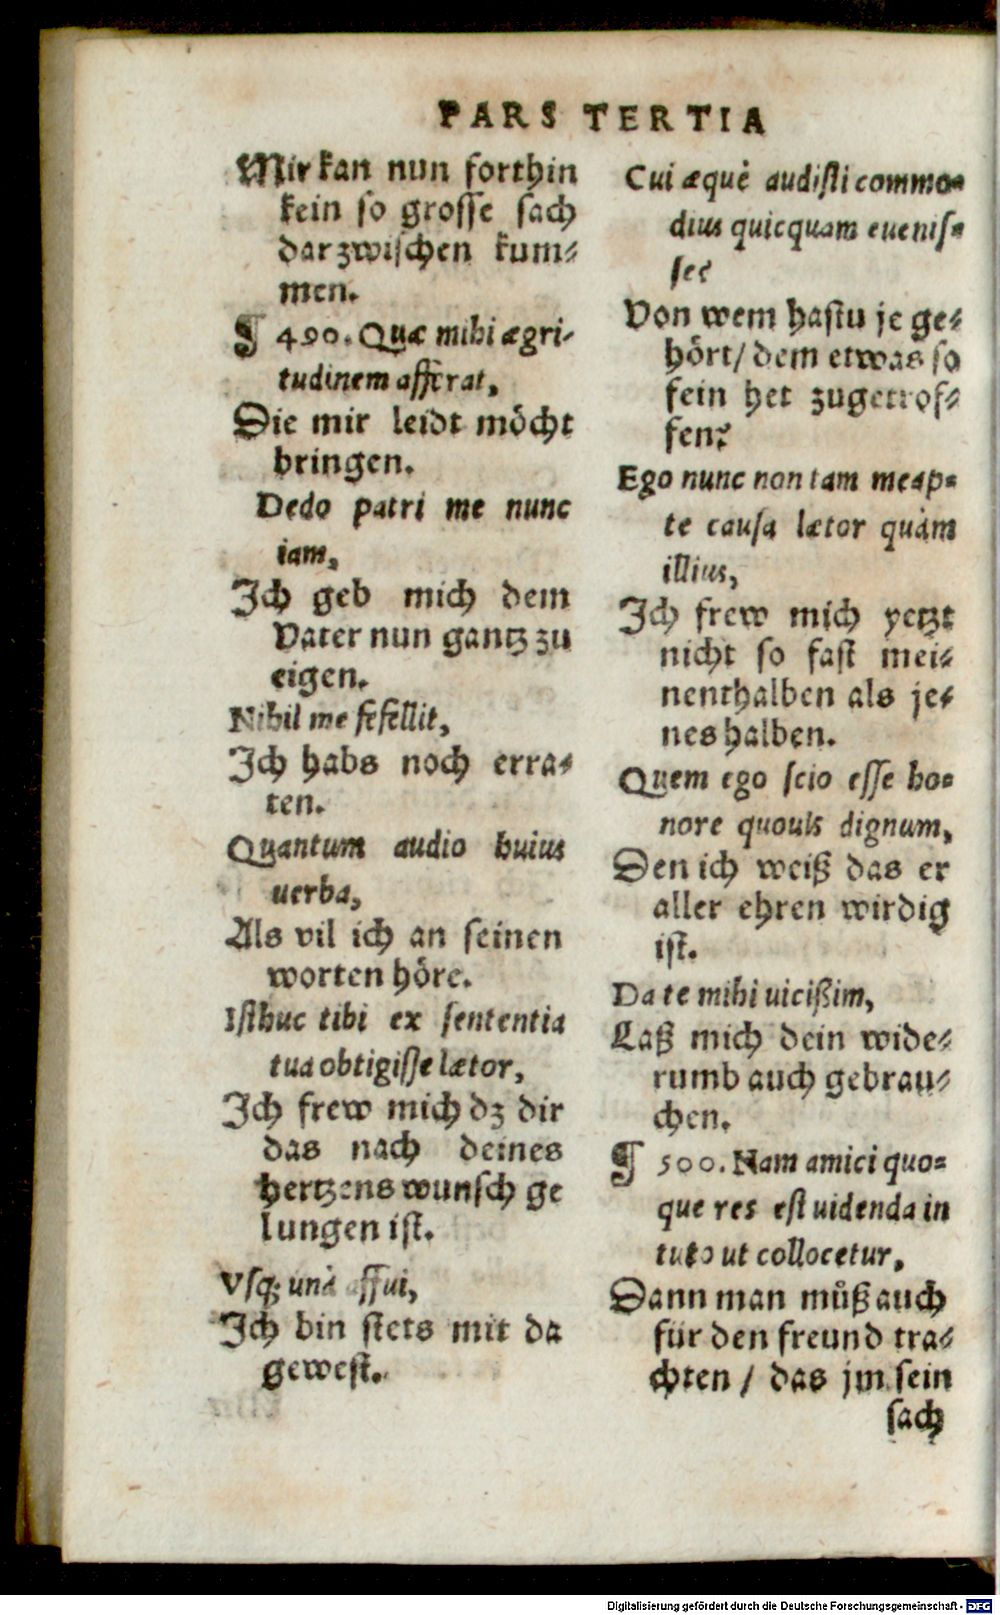 PARS TERTIA
Mir kan nun forthin
kein so grosse sach
darzwischen kum⸗
men.
¶ 490. Quæ mihi ægri-
tudinem afferat,
Die mir leidt möcht
bringen.
Dedo patri me nunc
iam,
Ich geb mich dem
Vater nun gantz zu
eigen.
Nihil me fefellit,
Ich habs noch erra⸗
ten.
Quantum audio huius
uerba,
Als vil ich an seinen
worten höre.
Isthuc tibi ex sententia
tua obtigisse lætor,
Ich frew mich dz dir
das nach deines
hertzens wunsch ge
lungen ist.
Vsq; unà affui,
Ich bin stets mit da
gewest.
Cui æquè audisti commo-
dius quicquam euenis-
se?
Von wem hastu je ge⸗
hört/ dem etwas so
fein het zugetrof⸗
fen?
Ego nunc non tam meap-
te causa lætor quàm
illius,
Ich frew mich yetzt
nicht so fast mei⸗
nenthalben als je⸗
nes halben.
Quem ego scio esse ho-
nore quouis dignum,
Den ich weiß das er
aller ehren wirdig
ist.
Da te mihi uicißim,
Laß mich dein wide⸗
rumb auch gebrau⸗
chen.
¶ 500. Nam amici quo-
que res est uidenda in
tuto ut collocetur,
Dann man můß auch
für den freund tra⸗
chten / das jm sein
sach
Digitalisierung gefördert durch die Deutsche Forschungsgemeinschaft - DFG